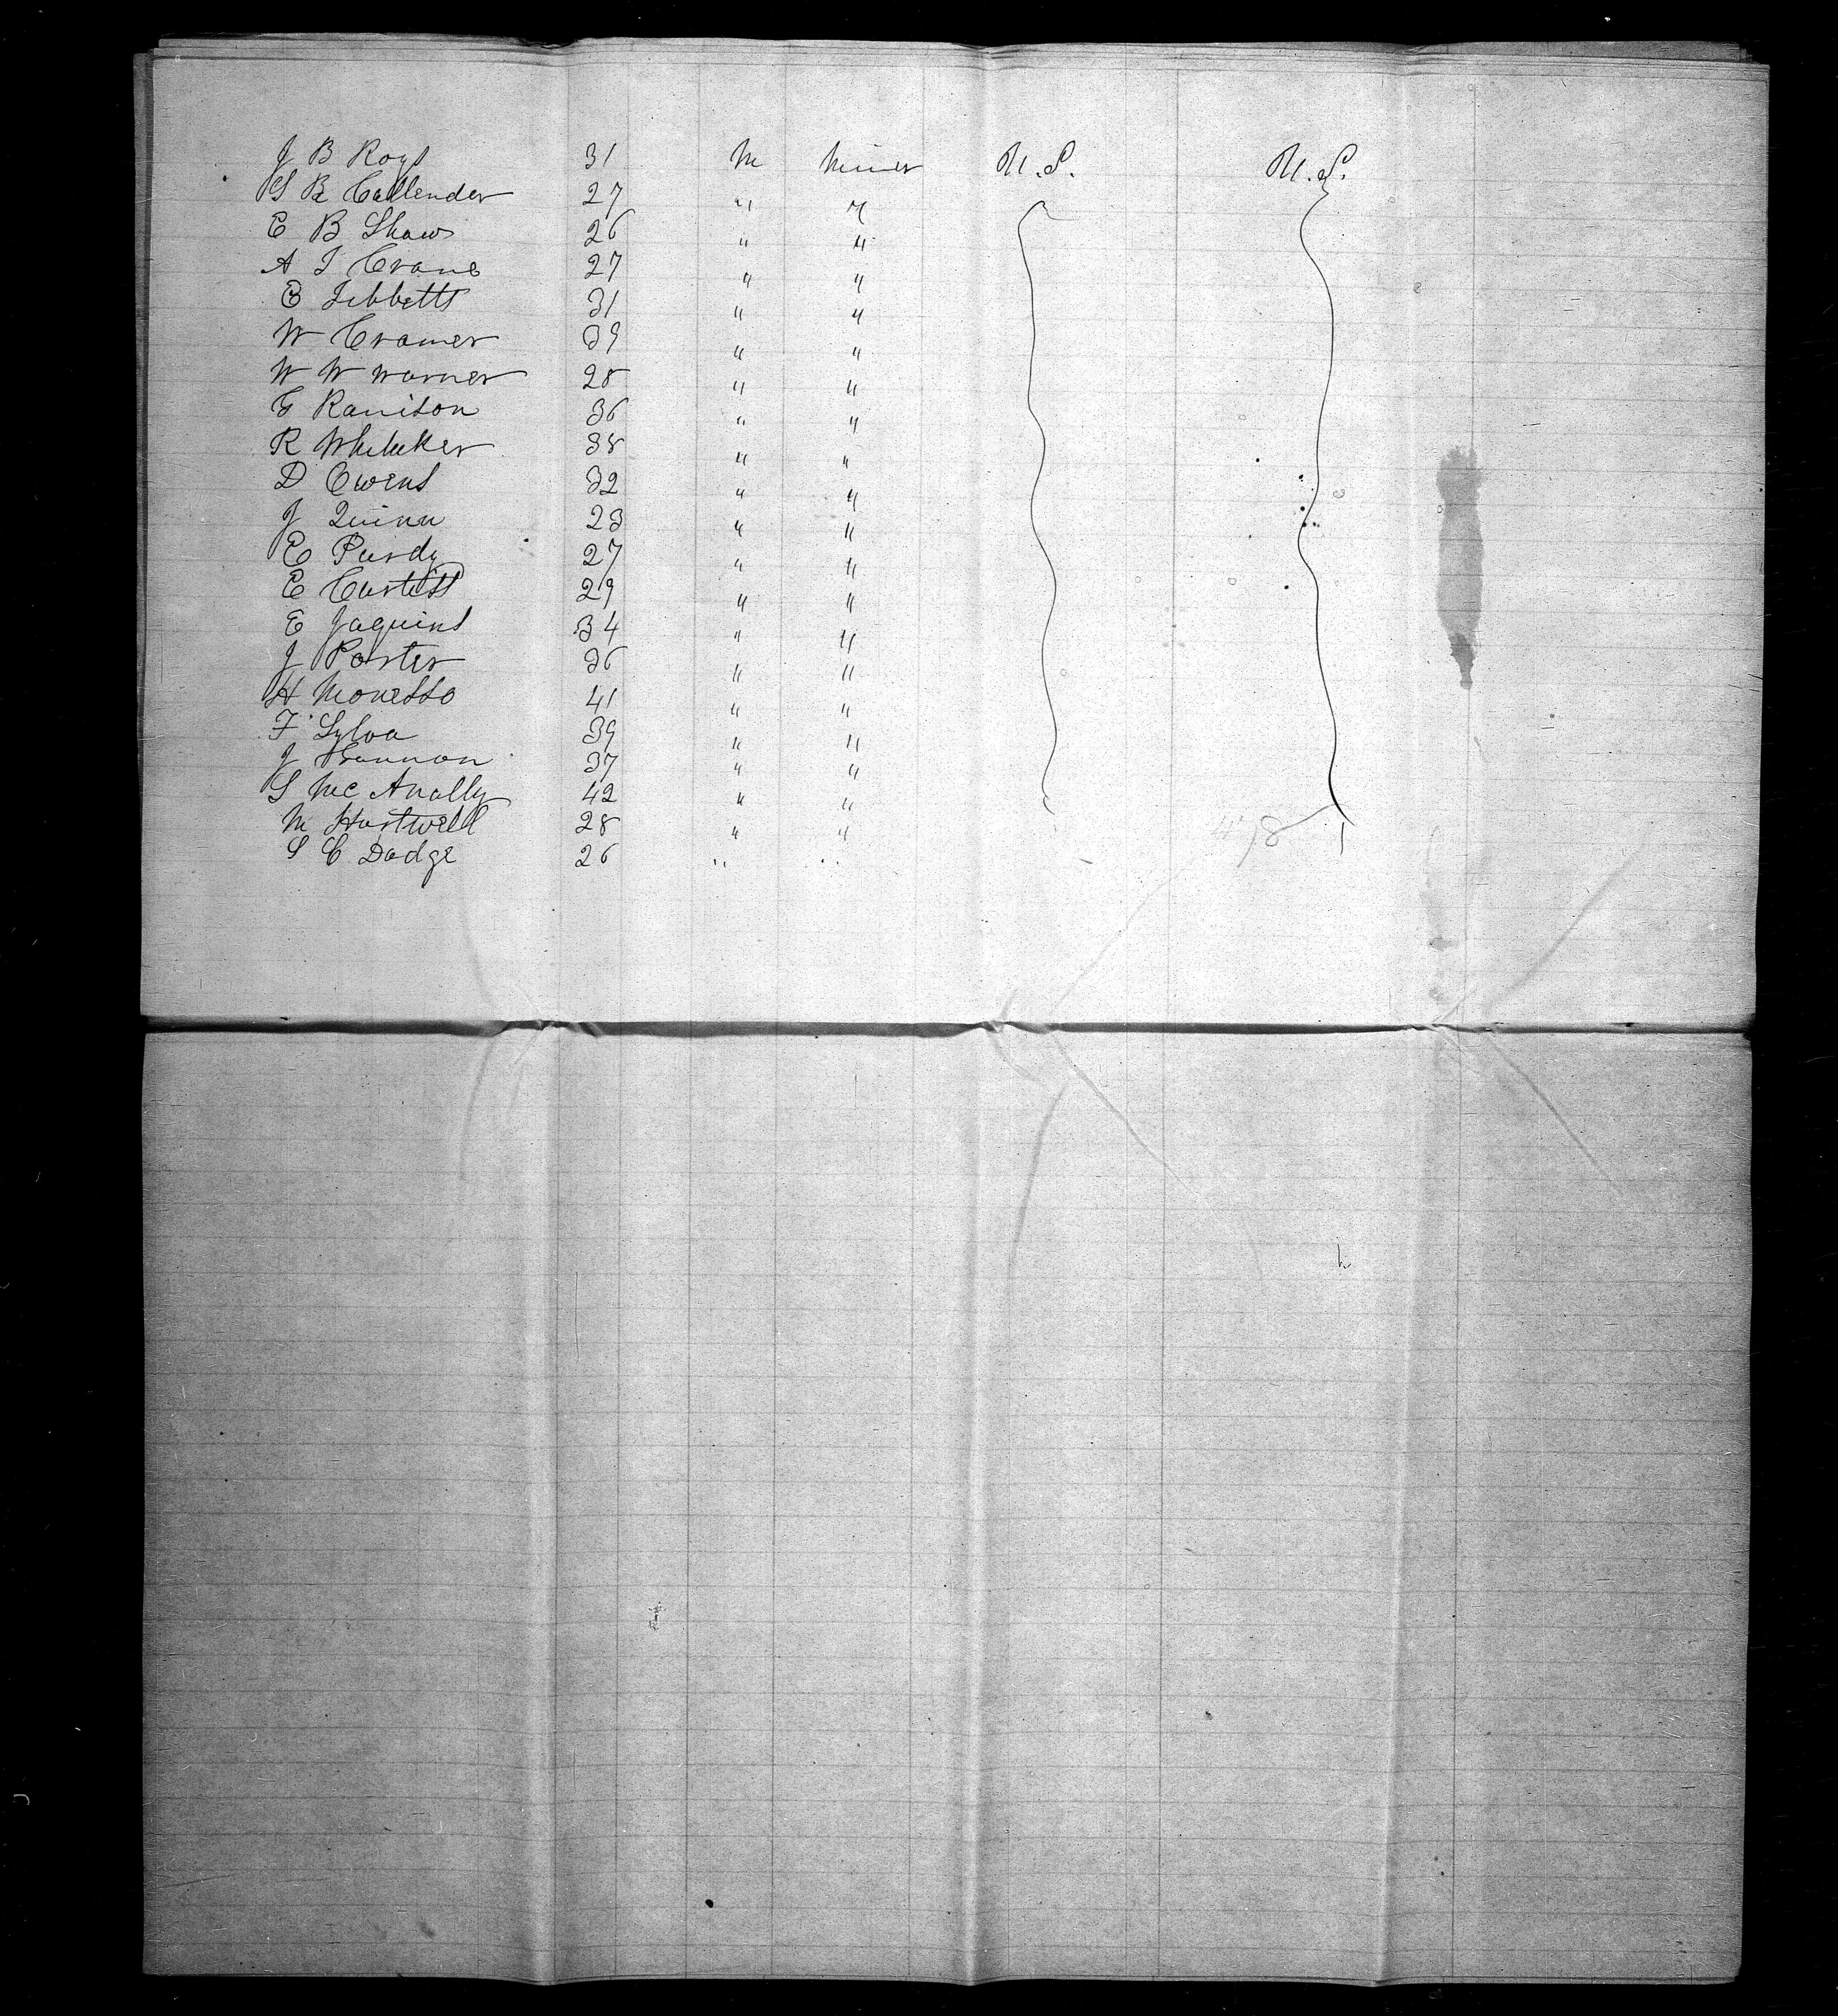 J B Roys 31 M Miner U.S. U.S.
S B Callender 27 " "
E B Shaw 26 " "
A T Crane 27 " "
E Tibbetts 31 " "
W Cramer 39 " "
W W Warner 28 " "
G Ranison 36 " "
R Whitaker 38 " "
D Owens 32 " "
J Quinn 23 " "
E Purdy 27 " "
E Curtiss 29 " "
E Jaquins 34 " "
J Porter 36 " "
H 41 " "
F Sylva 39 " "
J Cannon 37 " "
S McAnally 42 " "
M Hartwell 28 " "
S C Dodge 26 " "